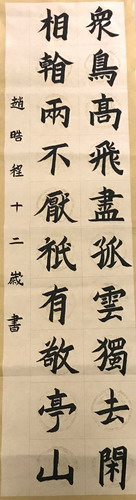 衆鳥高飛盡孤雲獨去閑
相兩不厭祇有敬亭山
趙晧程十二歲書